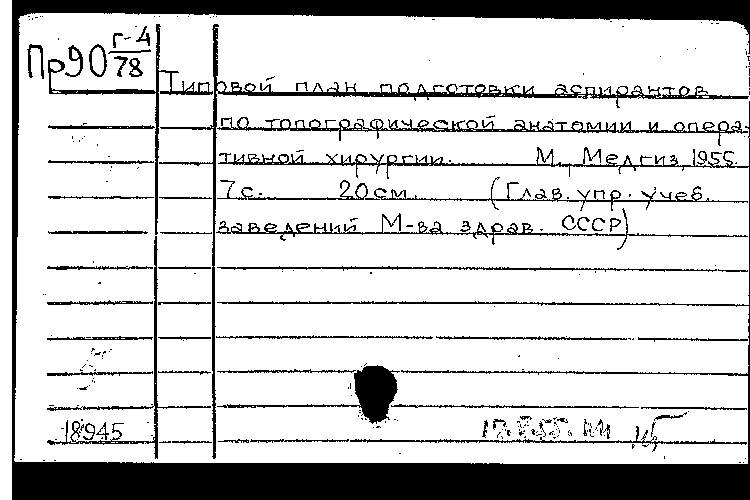 Пр90 г-4
78
Типовой план подготовки аспирантов
по топографической анатомии и опера-
тивной хирургии. М., Медгиз, 1955.
7 с. 20 см. (Глав. упр. учеб.
заведений М-ва здрав. СССР)
18945